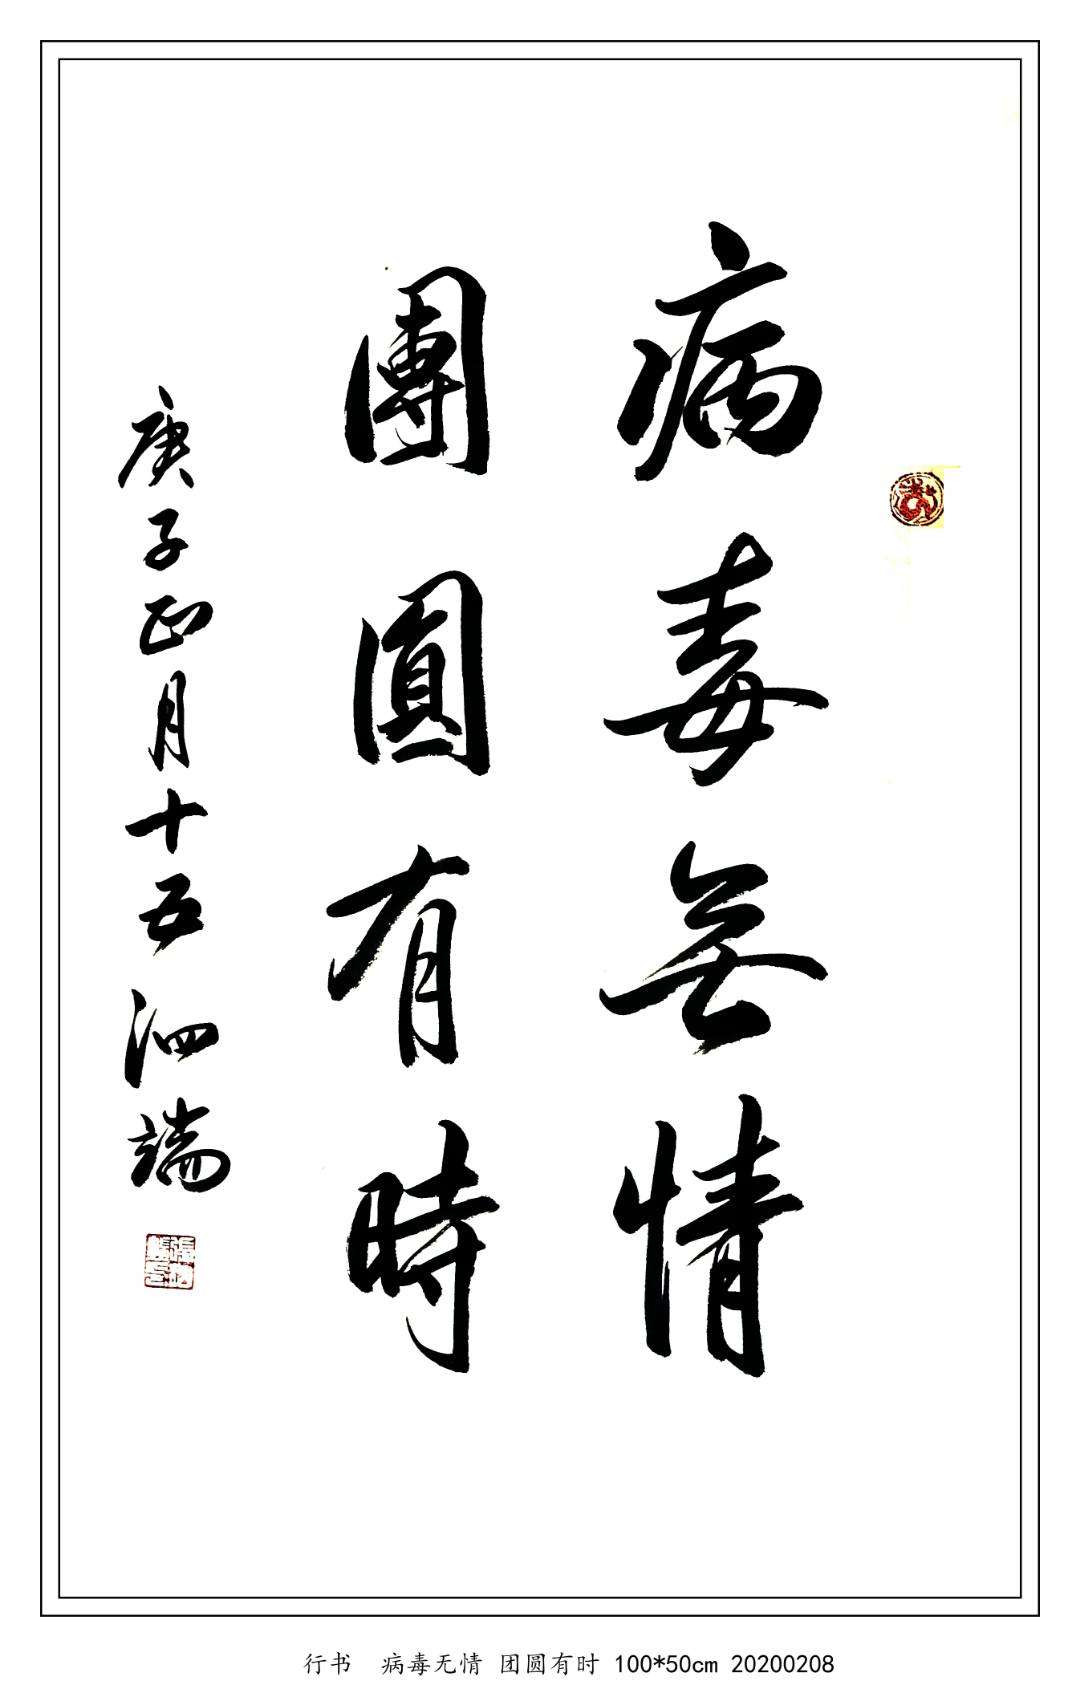 病毒無情
團圓有時
庚子正月十五泗端
行书 病毒无情 团圆有时 100*50cm 20200208